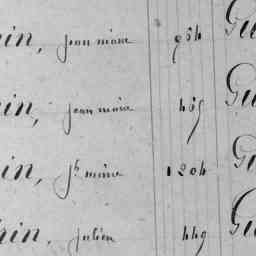 in, jean marie 964 Gu
in, jean marie 465 Gu
in, jh marie 1204 Gu
in, julien 449 Gu